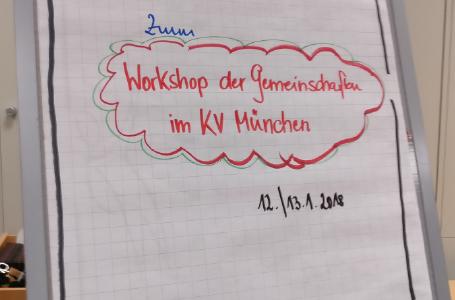 Zum
Workshop der Gemeinschaften
im KV München
12./13.1.2018